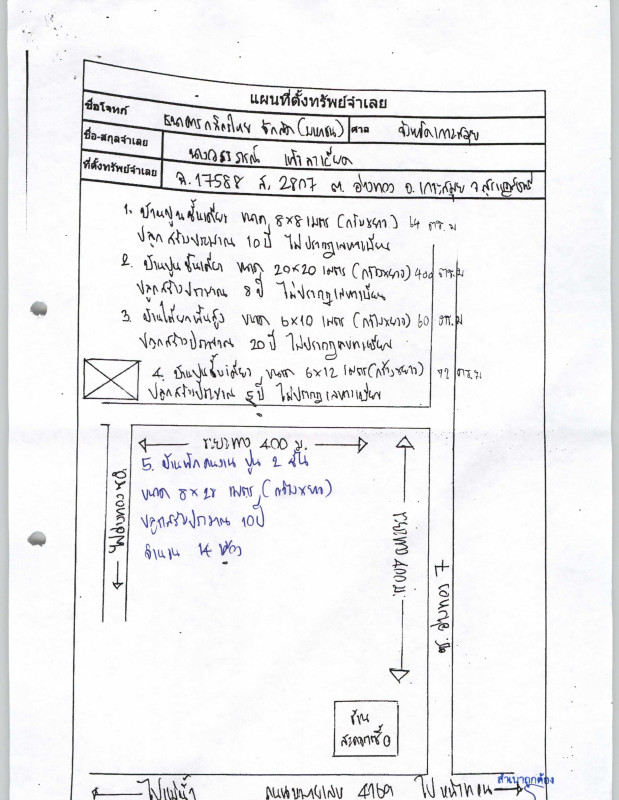 แผนที่ตั้งทรัพย์จำเลย
ชื่อโจทก์ ธนาคารกสิกรไทย จำกัด (มหาชน) ศาล จังหวัดเกาะสมุย
ชื่อ-สกุลจำเลย
ที่ตั้งทรัพย์จำเลย ฉ.17588 ต. อ่างทอง อ. เกาะสมุย จ. สุราษฎร์ธานี
1. บ้านปูนชั้นเดียว ขนาด 8×8 เมตร (กว้างxยาว) 64 ตร.ม
ปลูกสร้างประมาณ 10 ปี ไม่ปรากฏเลขทะเบียน
2. บ้านปูนชั้นเดียว ขนาด 20×20 เมตร (กว้างxยาว) 400 ตร.ม
ปลูกสร้างประมาณ 8 ปี ไม่ปรากฏเลขทะเบียน
3. บ้านไม้ยกพื้นสูง ขนาด 6×10 เมตร (กว้างxยาว) 60 ตร.ม
ปลูกสร้างประมาณ 20 ปี ไม่ปรากฏเลขทะเบียน
4. บ้านปูนชั้นเดียว ขนาด 6×12 เมตร (กว้างxยาว) 72 ตร.ม
ปลูกสร้างประมาณ 5 ปี ไม่ปรากฏเลขทะเบียน
ระยะทาง 400 ม.
5. บ้านพักคนงาน ปูน 2 ชั้น
ขนาด 8×28 เมตร (กว้างxยาว)
ปลูกสร้างประมาณ 10 ปี
จำนวน 14 ห้อง
ระยะทาง 400 ม.
ร้าน
สะดวกซื้อ
สำเนาถูกต้อง
ไปแม่น้ำ ถนนหมายเลข 4169 ไปหน้าทอน